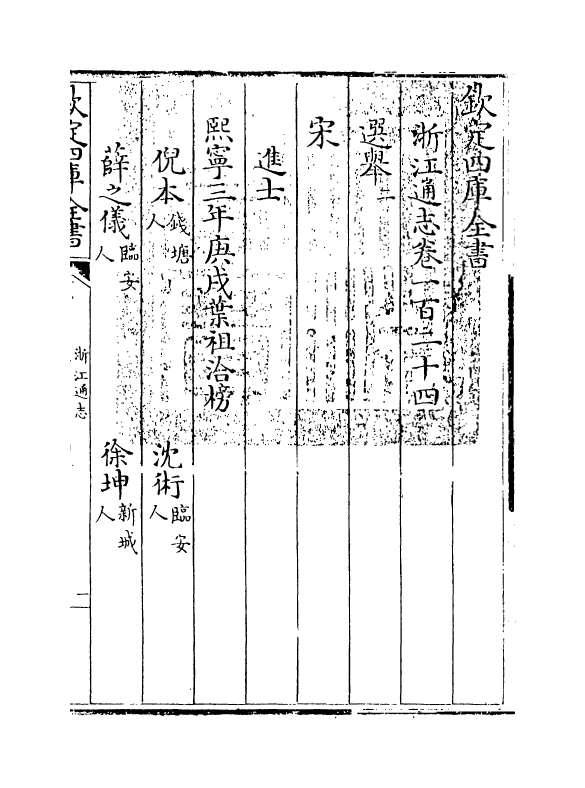 欽定四庫全書
浙江通志卷一百二十四
選舉二
宋
進士
熙寧三年庚戌葉祖洽榜
倪本錢塘人
沈術臨安人
薛之儀臨安人
徐坤新城人
欽定四庫全書
浙江通志
二